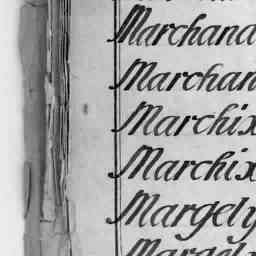 Marchana
Marchan
Marchix
Marchix
Margely